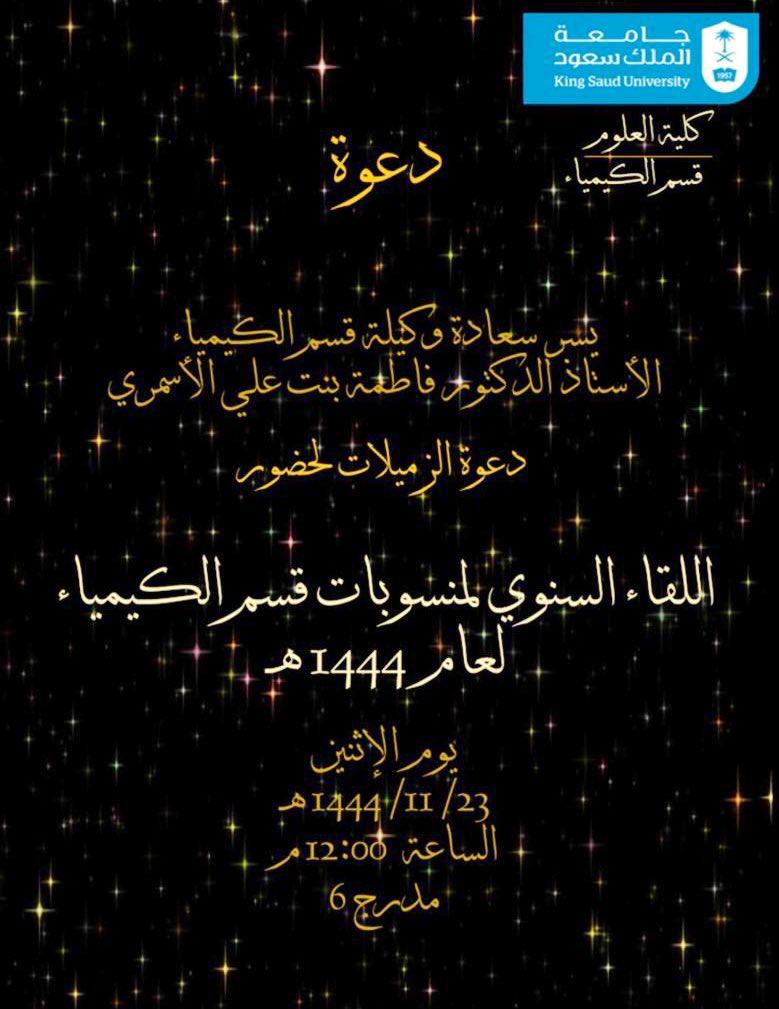 جامعة
الملك سعود
King Saud University
1957
كلية العلوم
قسم الكيمياء
دعوة
يسر سعادة وكيلة قسم الكيمياء
الأستاذ الدكتور فاطمة بنت علي الأسمري
دعوة الزميلات لحضور
اللقاء السنوي لمنسوبات قسم الكيمياء
لعام 1444هـ
يوم الإثنين
23/ 11/ 1444هـ
الساعة 12:00م
مدرج 6